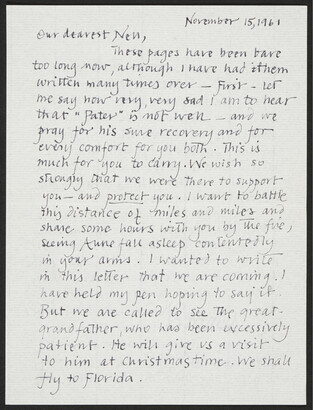 November 15, 1961
Our dearest Nell,
These pages have been bare
too long now, although I have had them
written many times over — First - let
me say how very, very sad I am to hear
that "Pater" is not well — and we
pray for his sure recovery and for
every comfort for you both. This is
much for you to carry. We wish so
strongly that we were there to support
you — and protect you. I want to battle
this distance of miles and miles and
share some hours with you by the fire,
seeing Aune fall asleep contentedly
in your arms. I wanted to write
in this letter that we are coming. I
have held my pen hoping to say it.
But we are called to see the great-
grandfather, who has been excessively
patient. He will give us a visit
to him at Christmastime. We shall
fly to Florida.